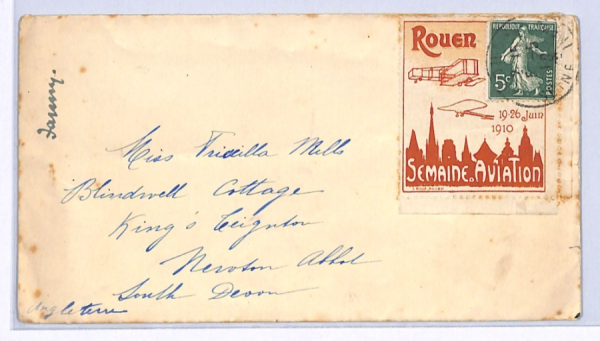 Rouen
REPUBLIQUE FRANÇAISE
5c
POSTES
19-26 Juin
1910
SEMAINE D'AVIATION
Fanny.
Miss Priscilla Mells
Blindwell Cottage
King's Teignton
Newton Abbot
South Devon
Angleterre